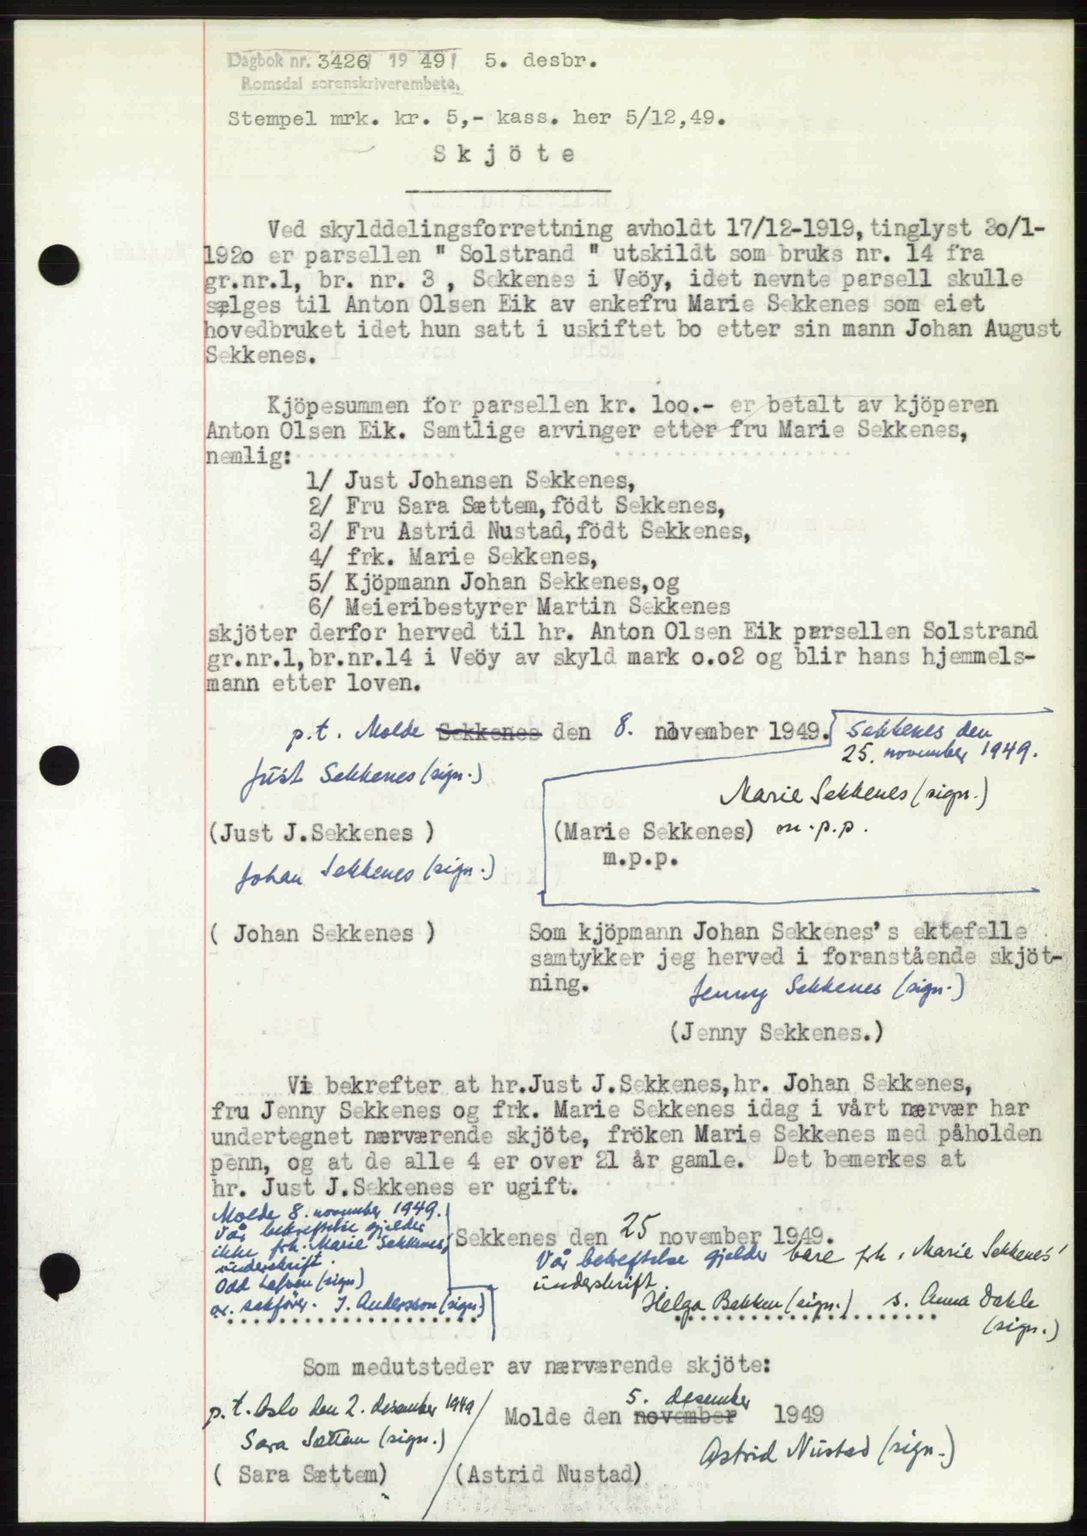 Dagbok nr. 3426 1949 5. desbr.
Romsdal sorenskriverembete.
Stempel mrk. kr. 5,- kass. her 5/12,49.
Skjöte
Ved skylddelingsforrettning avholdt 17/12-1919, tinglyst 3o/1-
192o er parsellen " Solstrand " utskildt som bruks nr. 14 fra
gr.nr.1, br. nr. 3 , Sekkenes i Veöy, idet nevnte parsell skulle
sælges til Anton Olsen Eik av enkefru Marie Sekkenes som eiet
hovedbruket idet hun satt i uskiftet bo etter sin mann Johan August
Sekkenes.
Kjöpesummen for parsellen kr. loo.- er betalt av kjöperen
Anton Olsen Eik. Samtlige arvinger etter fru Marie Sekkenes,
nemlig:
1/ Just Johansen Sekkenes,
2/ Fru Sara Sættem, födt Sekkenes,
3/ Fru Astrid Nustad, födt Sekkenes,
4/ frk. Marie Sekkenes,
5/ Kjöpmann Johan Sekkenes, og
6/ Meieribestyrer Martin Sekkenes
skjöter derfor herved til hr. Anton Olsen Eik parsellen Solstrand
gr.nr.1, br.nr.14 i Veöy av skyld mark o.o2 og blir hans hjemmels-
mann etter loven.
p.t. Molde Sekkenes den 8. november 1949. Sekkenes den
25. november 1949.
Just Sekkenes (sign.)
Marie Sekkenes (sign.)
(Just J.Sekkenes ) (Marie Sekkenes) m.p.p.
m.p.p.
Johan Sekkenes (sign.)
( Johan Sekkenes ) Som kjöpmann Johan Sekkenes's ektefelle
samtykker jeg herved i foranstående skjöt-
ning.
Jenny Sekkenes (sign.)
(Jenny Sekkenes.)
Vi bekrefter at hr.Just J.Sekkenes, hr. Johan Sekkenes,
fru Jenny Sekkenes og frk. Marie Sekkenes idag i vårt nærvær har
undertegnet nærværende skjöte, fröken Marie Sekkenes med påholden
penn, og at de alle 4 er over 21 år gamle. Det bemerkes at
hr. Just J.Sekkenes er ugift.
Molde 8. november 1949.
Vår bekreftelse gjelder
ikke frk. Marie Sekkenes'
underskrift.
Odd (sign)
sakförer. J. Anderson (sign.)
Sekkenes den 25 november 1949.
Vår bekreftelse gjelder bare frk. Marie Sekkenes'
underskrift.
Helga Bakken (sign.) s. Anna Dahle
(sign.)
Som medutsteder av nærværende skjöte:
p.t. Oslo den 2. desember 1949
Sara Sættem (sign.)
( Sara Sættem)
5. desember
Molde den november 1949
Astrid Nustad (sign.)
(Astrid Nustad)